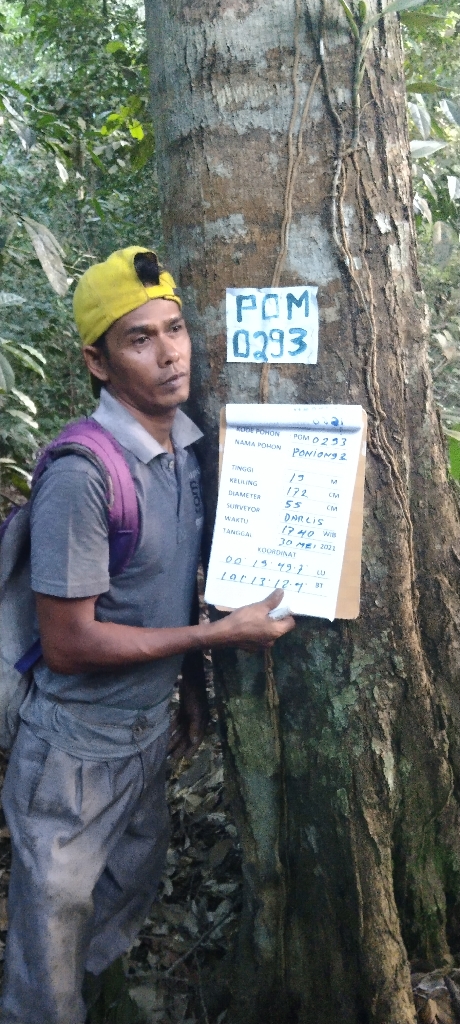 POM
0293
KODE POHON POM 0293
NAMA POHON PONIONG2
TINGGI 19 M
KELILING 172 CM
DIAMETER 55 CM
SURVEYOR DARLIS
WAKTU 17:40 WIB
TANGGAL 30 MEI 2021
KOORDINAT
00° 19' 49.7 LU
101° 13' 12.4 BT